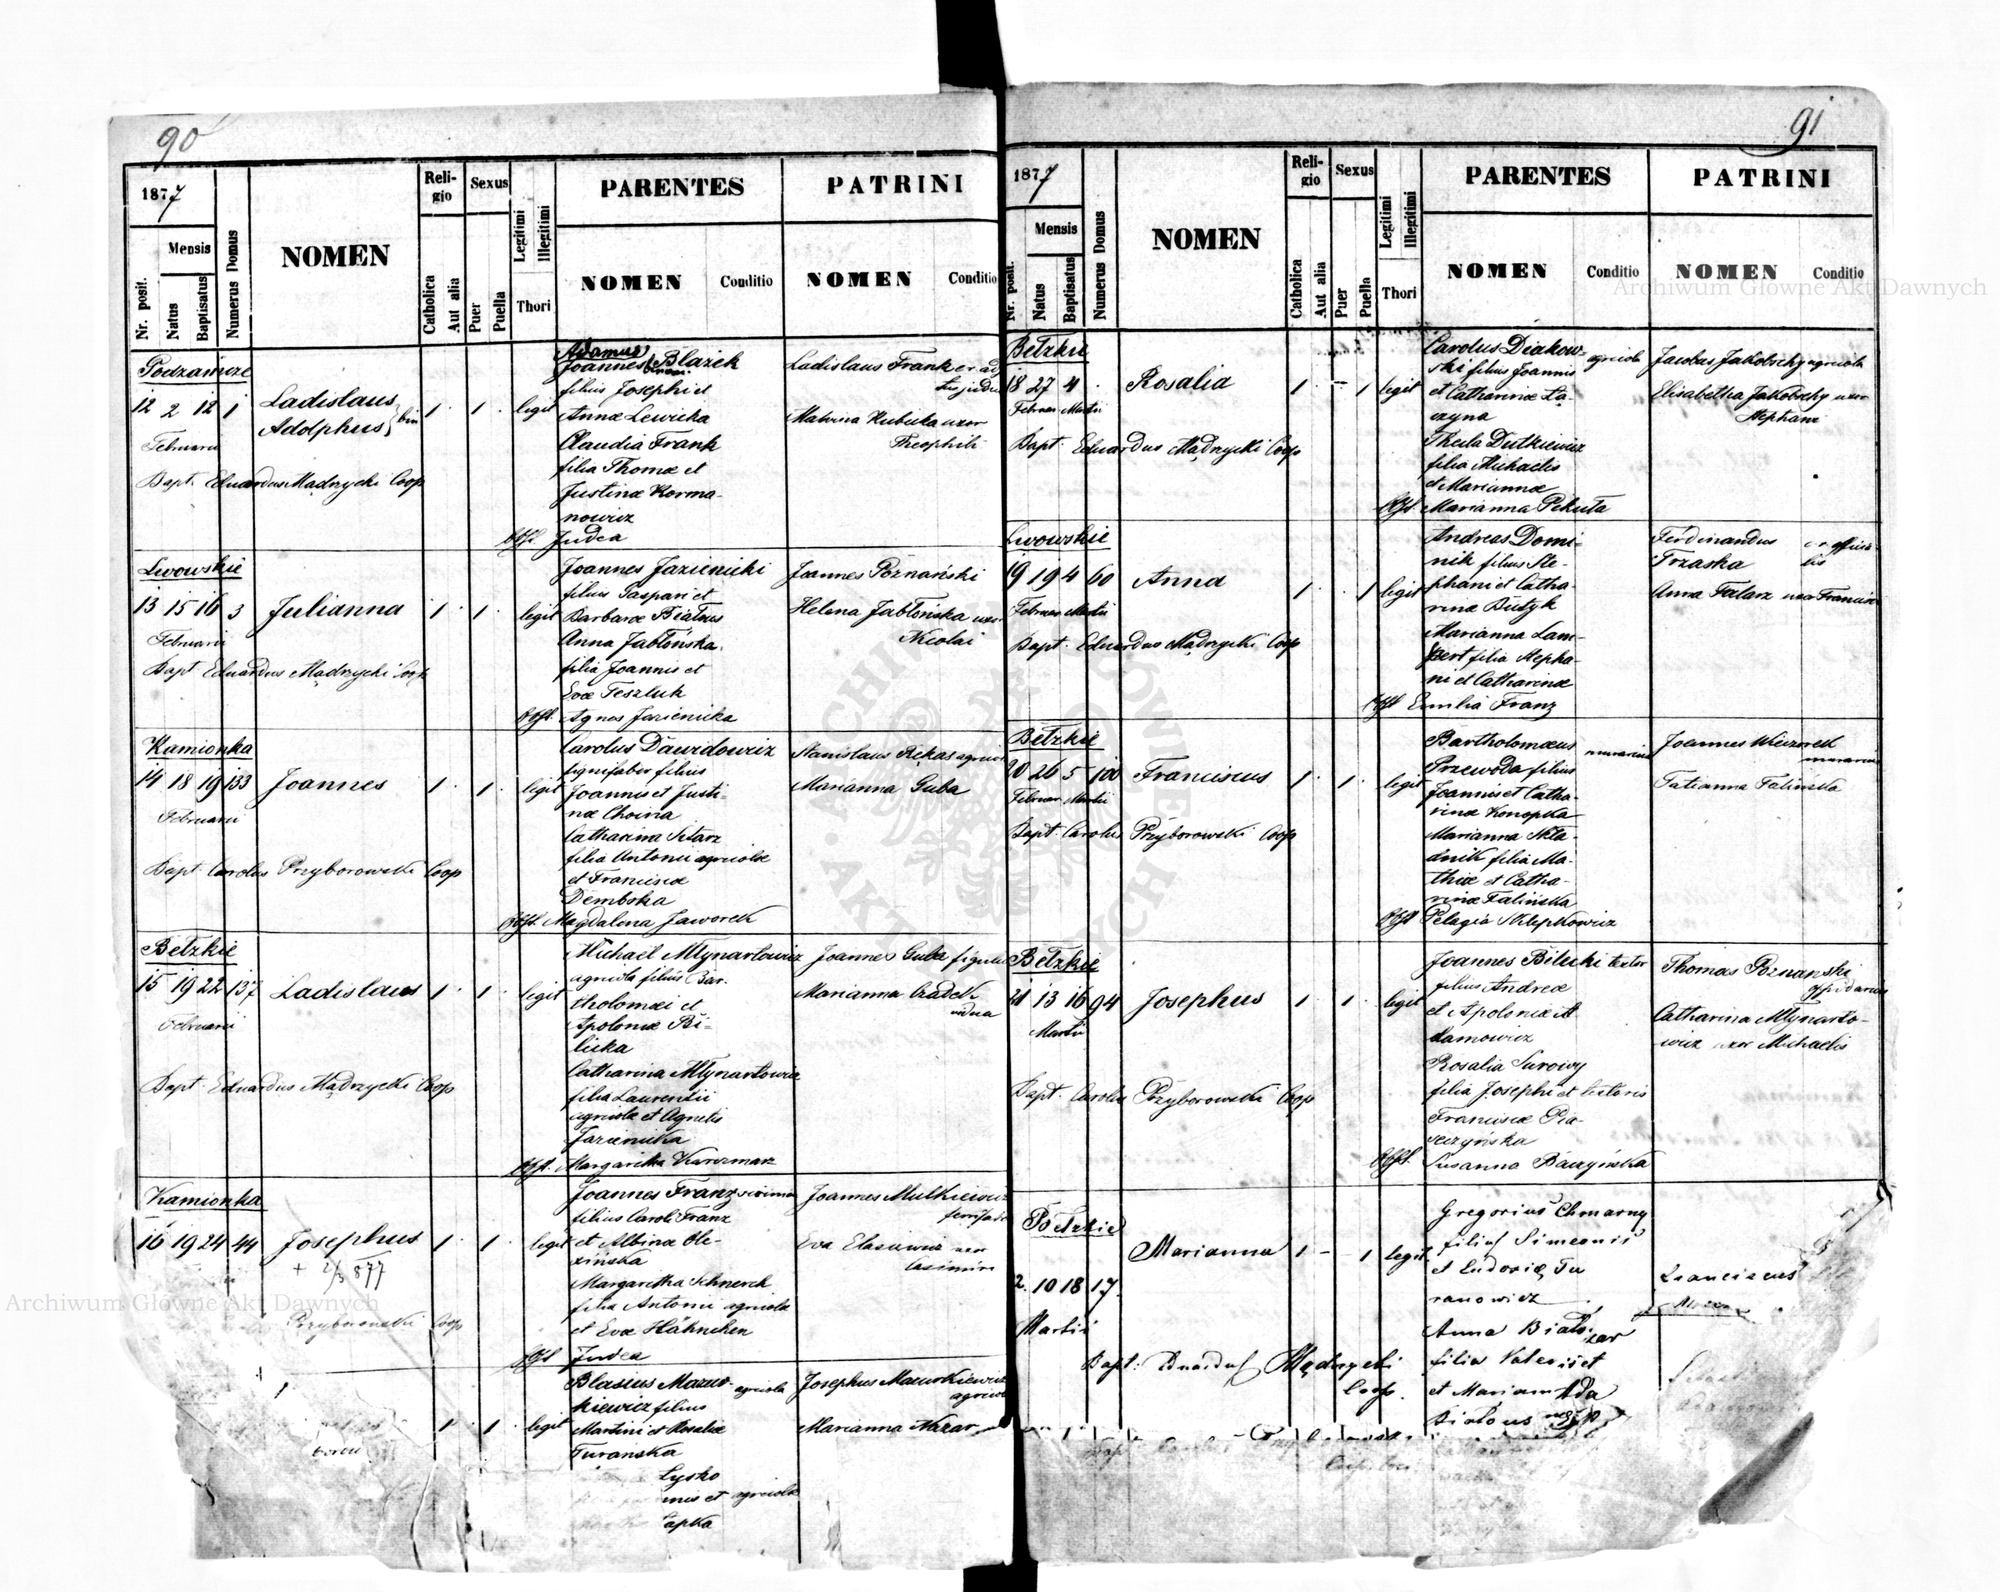 90
1877
Nr. posit.
Mensis
Natus
Baptisatus
Numerus Domus
NOMEN
Reli-
gio
Catholica
Aut alia
Sexus
Puer
Puella
Legitimi
Illegitimi
Thori
PARENTES
NOMEN Conditio
PATRINI
NOMEN Conditio
Podzamcze
12 2 12 1
Februarii
Ladislaus
Adolphus, bin
1 1 legit
Adamus
Joannes Blazek
filius Josephi et
Annæ Lewicka
Claudia Frank
filia Thomæ et
Justinæ Korma-
nowicz
Judea
Ladislaus Frank
Theophili
Bapt. Eduardus Mądrzycki Coop
Lwowskie
13 15 16 3
Februarii
Julianna
1 1 legit
Joannes Jazienicki
filius Gaspari et
Barbaræ Białous
Anna Jabłońska
filia Joannis et
Evæ Teszluk
Obst. Agnes Jazienicka
Joannes Poznański
Helena Jabłońska uxor
Nicolai
Bapt. Eduardus Mądrzycki Coop
Kamionka
14 18 19 133
Februarii
Joannes
1 1 legit
Carolus Dawidowicz
lignifaber filius
Joannis et Justi-
næ Choina
Catharina Sitarz
filia Antonii agricolæ
et Franciscæ
Dembska
Obst. Magdalena Jaworek
Stanislaus Rękas agricola
Marianna Guba
Bapt. Carolus Przyborowski Coop
Bełzkie
15 19 22 137
Februarii
Ladislaus
1 1 legit
Michaël Młynartowicz
agricola filius Bar-
tholomæi et
Apoloniæ Bi-
licka
Catharina Młynartowicz
filia Laurentii
agricolæ et Agnetis
Jazienicka
Obst. Margaritha Karczmarz
Joannes Guba figulus
Marianna Czadek
vidua
Bapt. Eduardus Mądrzycki Coop
Kamionka
16 19 24 44
Josephus
+ 2/3 877
1 1 legit
Joannes Franz
filius Caroli Franz
et Albinæ Ole-
xińska
Margaritha Schnerch
filia Antonii agricolæ
et Evæ Hähnchen
Obst Judea
Joannes Mulkiewicz
Eva
Casimiri
Przyborowski Coop
1 1 legit
Blasius Mazur- agricola
kiewicz filius
Martini et Rosaliæ
Turanska
Lysko
nnis et agricolæ
apka
Josephus Mazurkiewicz
agricola
Marianna Nazar
91
1877
Nr. posit.
Mensis
Natus
Baptisatus
Numerus Domus
NOMEN
Reli-
gio
Catholica
Aut alia
Sexus
Puer
Puella
Legitimi
Illegitimi
Thori
PARENTES
NOMEN Conditio
PATRINI
NOMEN Conditio
Bełzkie
18 27 4
Februar Martii
Rosalia
1 - 1 legit
Carolus Diakow- agricola
ski filius Joannis
et Catharinæ Ła-
czyna
Thecla Dutkiewicz
filia Michaelis
et Mariannæ
Obst. Marianna Pekuta
Jacobus Jakobschy agricola
Elisabetha Jakobschy uxor
Stephani
Bapt. Eduardus Mądrzycki Coop
Lwowskie
19 19 4 60
Februar Martii
Anna
1 1 legit
Andreas Domi-
nik filius Ste-
phani et Catha-
rinæ Butyk
Marianna Lam-
pert filia Stepha-
ni et Catharinæ
Obst Emilia Franz
Ferdinandus
Trzaska
Anna Talarz uxor Francisci
Bapt. Eduardus Mądrzycki Coop
Bełzkie
20 26 5 100
Februar Martii
Franciscus
1 1 legit
Bartholomæus murarius
Przewoda filius
Joannis et Catha-
rinæ Konopka
Marianna Skła-
dnik filia Ma-
thiæ et Catha-
rinæ Talińska
Obst Pelagia Sklepkowicz
Joannes Wieczorek
murarius
Tatianna Talińska
Bapt. Carolus Przyborowski Coop
Bełzkie
21 13 16 94
Martii
Josephus
1 1 legit
Joannes Bilecki textor
filius Andreæ
et Apoloniæ A-
damowicz
Rosalia Surowy
filia Josephi et textoris
Franciscæ Pia-
seczyńska
Obst. Susanna Baczyńska
Thomas Poznanski
oppidanus
Catharina Młynarto-
wicz uxor Michaelis
Bapt. Carolus Przyborowski Coop
Bełzkie
2. 10 18 17.
Martii
Marianna
1 - 1 legit
Gregorius Chmarny
filius Simeonis
et Ludovicæ Tu
ranowicz
Anna Biało-
zar
filia Valerii et
et Mariannæ
Franciscus
Bapt: Eduardus Mądrzycki
Coop.
Archiwum Główne Akt Dawnych
Archiwum Główne Akt Dawnych